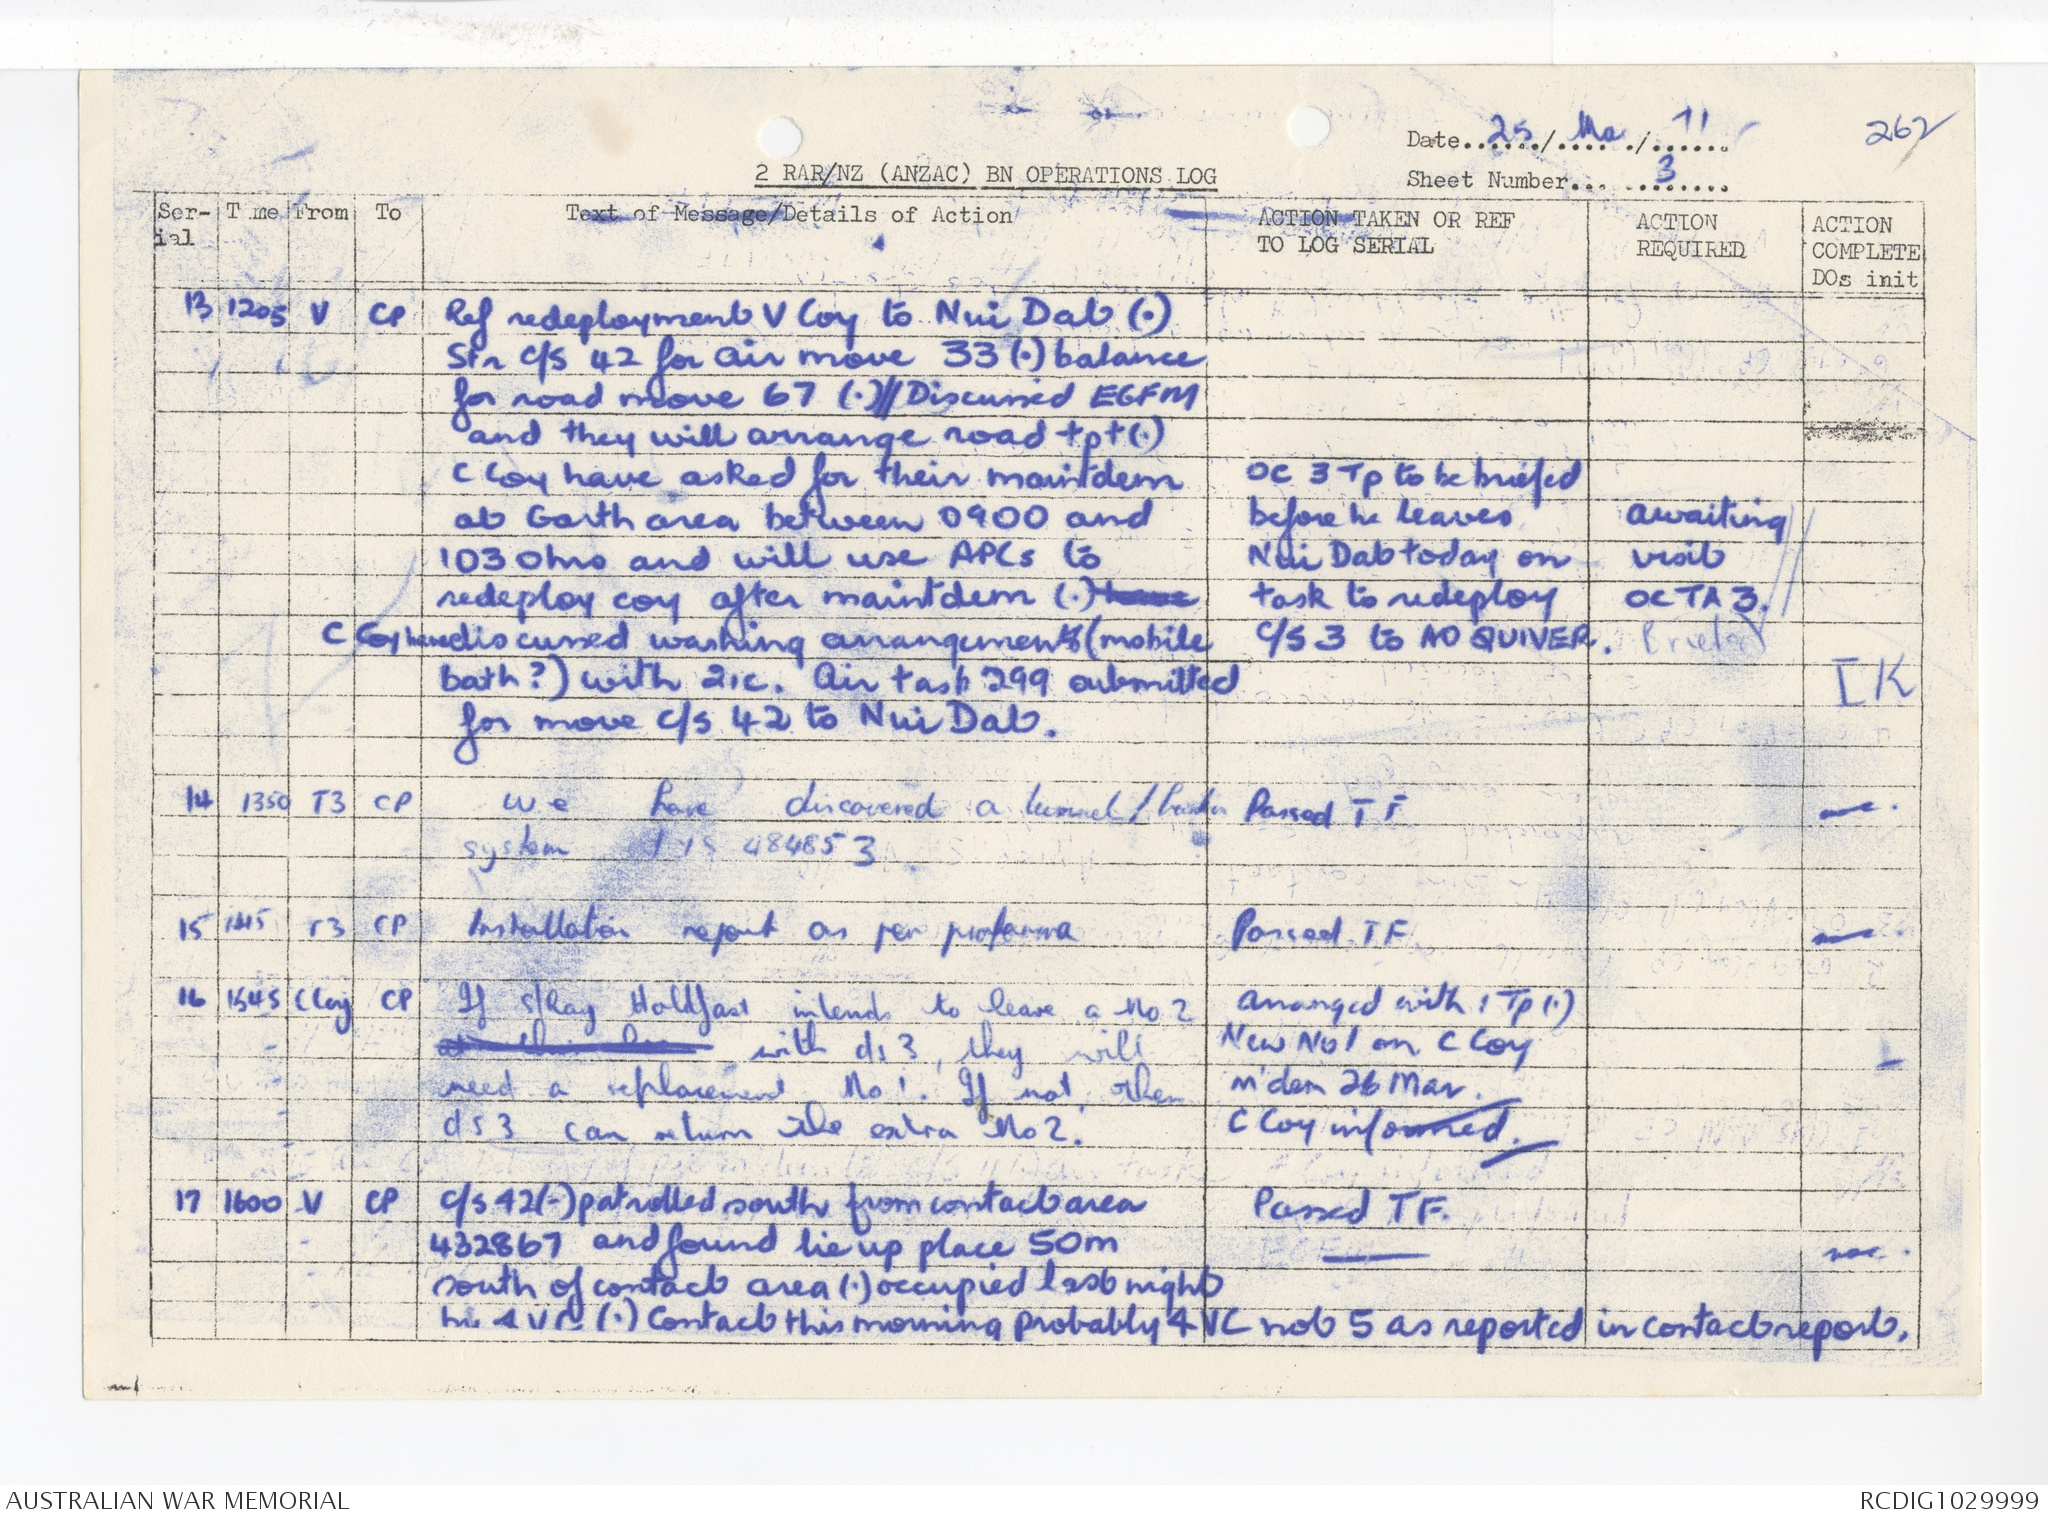 Date 25 / Ma / 71
262
2 RAR/NZ (ANZAC) BN OPERATIONS LOG
Sheet Number 3
Ser-ial Time From To Text of Message/Details of Action ACTION TAKEN OR REF TO LOG SERIAL ACTION REQUIRED ACTION COMPLETE DOs init
13 1205 V CP Ref redeployment V Coy to Nui Dat (.)
Str C/S 42 for air move 33 (.) balance
for road move 67 (.) // Discussed EGFM
and they will arrange road tpt (.)
C Coy have asked for their maintdem OC 3 Tp to be briefed
at Garth area between 0900 and before he leaves awaiting
1030 hrs and will use APCs to Nui Dat today on visit
redeploy coy after maintdem (.) have task to redeploy OC TA 3.
C Coy have discussed washing arrangements (mobile C/S 3 to AO QUIVER. Briefed
bath?) with 2ic. Air task 299 submitted IK
for move C/S 42 to Nui Dat.
14 1350 T3 CP We have discovered a tunnel/bunker Passed TF
system YS 484853
15 1415 T3 CP Installation report as per proforma Passed TF
16 1545 C Coy CP If s/Ray Holdfast intends to leave a No 2 arranged with 1 Tp (.)
with c/s 3, they will New No 1 on C Coy
need a replacement No 1. If not, then m'dem 26 Mar.
c/s 3 can return the extra No 2. C Coy informed.
17 1600 V CP C/S 42(-) patrolled south from contact area Passed TF.
432867 and found lie up place 50m
south of contact area (.) occupied last night
by 4 VC (.) Contact this morning probably 4 VC not 5 as reported in contact report.
AUSTRALIAN WAR MEMORIAL
RCDIG1029999